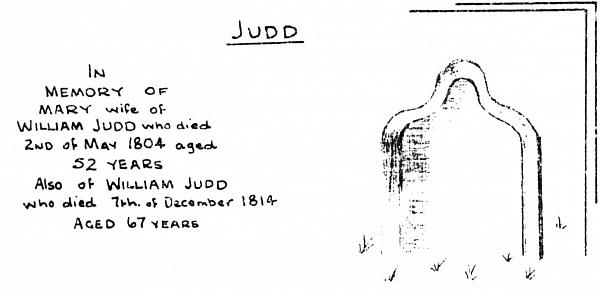 JUDD
IN
MEMORY OF
MARY wife of
WILLIAM JUDD who died
2ND of MAY 1804 aged
52 YEARS
Also of WILLIAM JUDD
who died 7th. of December 1814
AGED 67 YEARS